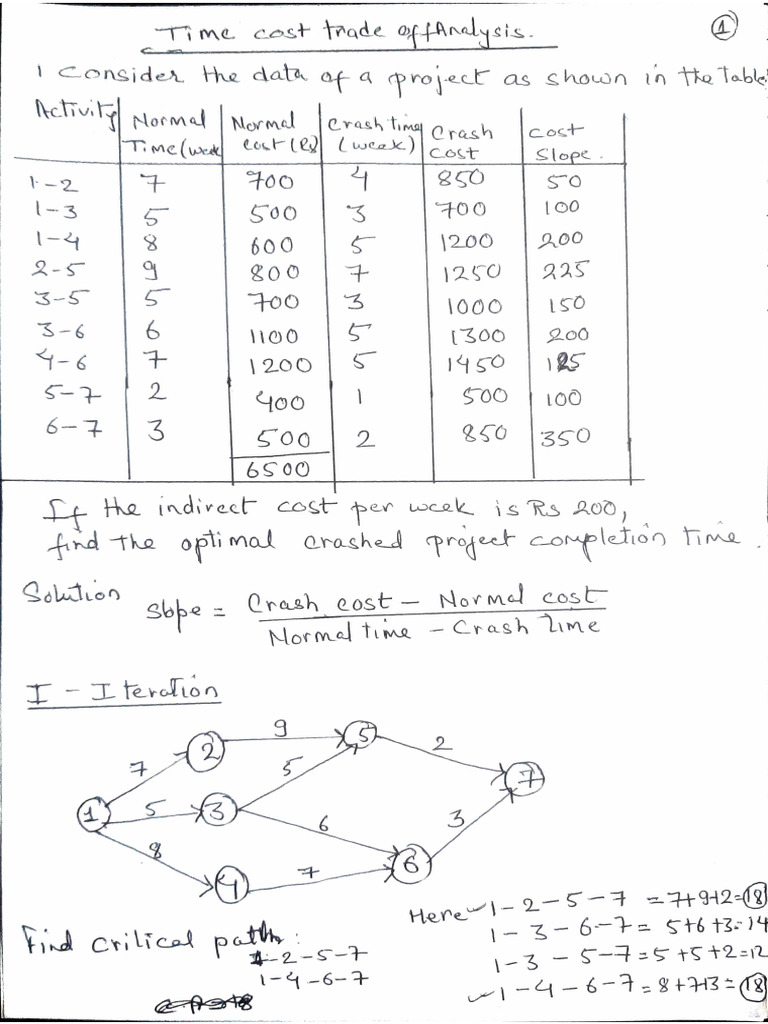 Time cost trade offAnalysis. 1
1 Consider the data of a project as shown in the Table
Activity Normal Time(week Normal cost(Rs) Crash time (week) Crash cost cost Slope.
1-2 7 700 4 850 50
1-3 5 500 3 700 100
1-4 8 600 5 1200 200
2-5 9 800 7 1250 225
3-5 5 700 3 1000 150
3-6 6 1100 5 1300 200
4-6 7 1200 5 1450 125
5-7 2 400 1 500 100
6-7 3 500 2 850 350
6500
If the indirect cost per week is Rs 200,
find the optimal crashed project completion time.
Solution slope = Crash cost - Normal cost
Normal time - Crash time
I - Iteration
9
2 5 2
7 5 7
1 5 3
6 3
8
4 7 6
Find critical path: Here 1-2-5-7 = 7+9+2=18
1-2-5-7 1-3-6-7 = 5+6+3=14
1-4-6-7 1-3-5-7=5+5+2=12
1-4-6-7=8+7+3=18